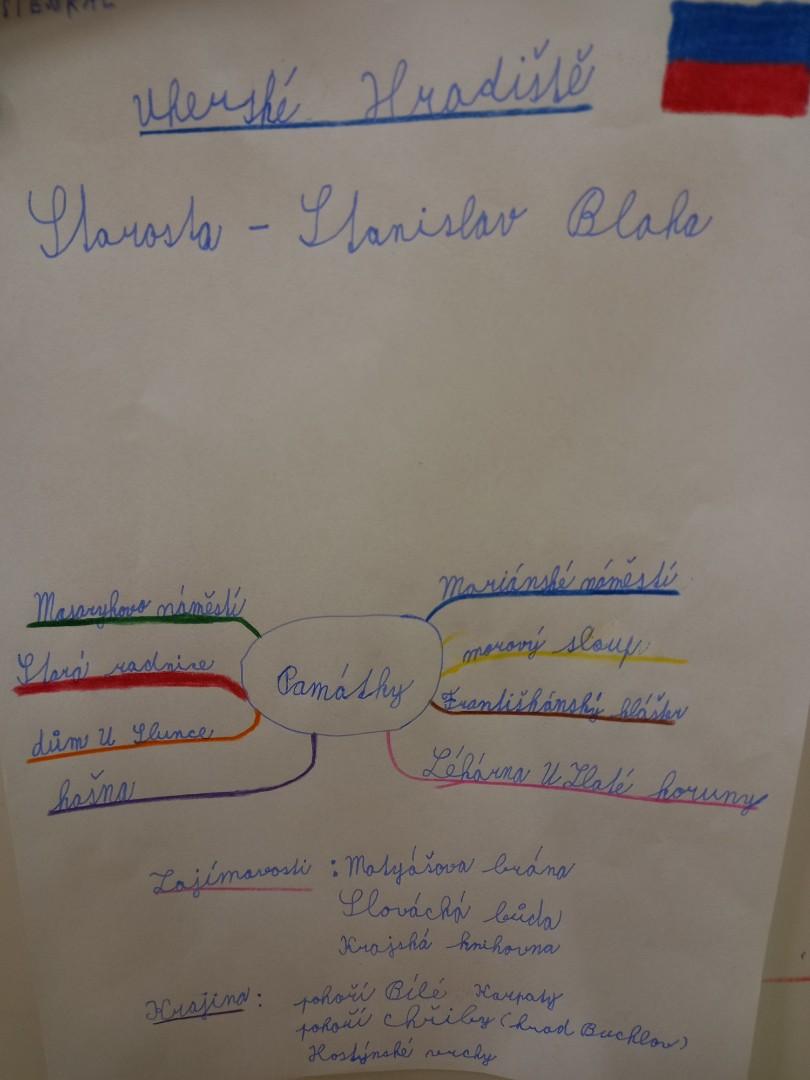 Uherské Hradiště
Starosta - Stanislav Blaha
Masarykovo náměstí
Stará radnice
dům U Slunce
kašna
Památky
Mariánské náměstí
morový sloup
Františkánský klášter
Lékárna U Zlaté koruny
Zajímavosti : Matyášova brána
Slovácká búda
Krajská knihovna
Krajina : pohoří Bílé Karpaty
pohoří Chřiby (hrad Buchlov)
Hostýnské vrchy